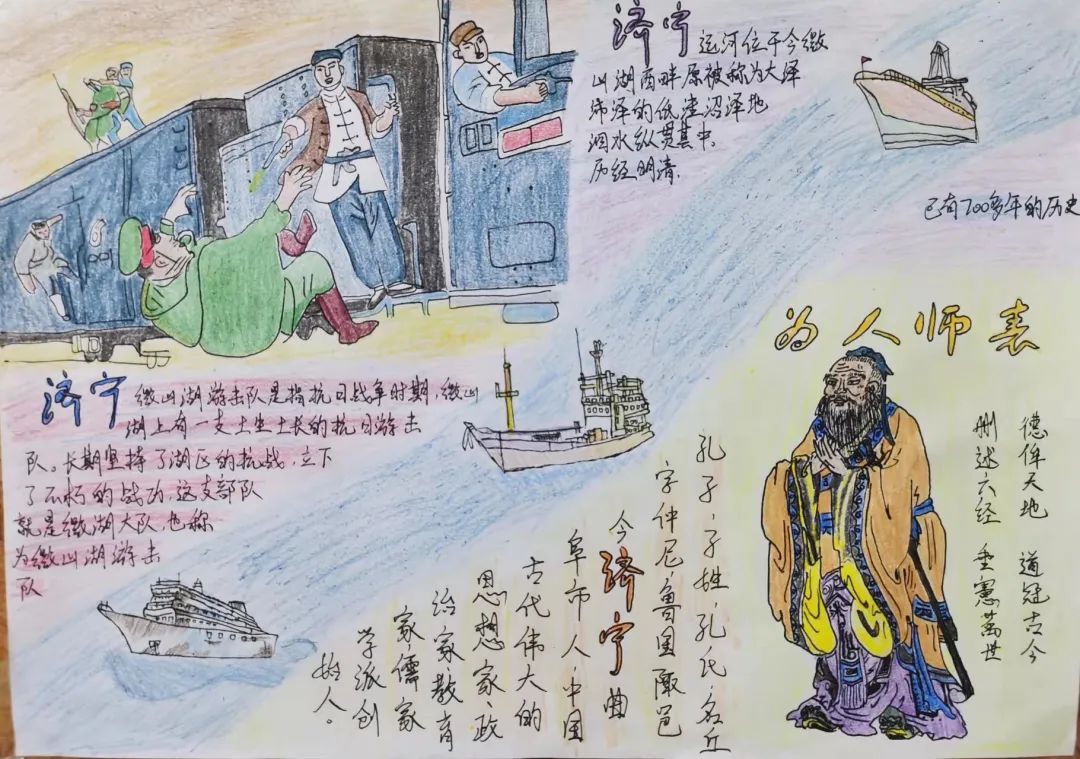 济宁 运河位于今微
山湖西畔原被称为大泽
沛泽的低洼沼泽地
泗水纵贯其中。
历经明清.
已有700多年的历史
济宁 微山湖游击队是指抗日战争时期，微山
湖上有一支土生土长的抗日游击
队。长期坚持了湖区的抗战，立下
了不朽的战功，这支部队
就是微湖大队，也称
为微山湖游击
队
为人师表
德侔天地 道冠古今
删述六经 垂憲萬世
孔子，子姓，孔氏，名丘
字仲尼，鲁国陬邑
今济宁曲
阜市人，中国
古代伟大的
思想家、政
治家教育
家，儒家
学派创
始人。